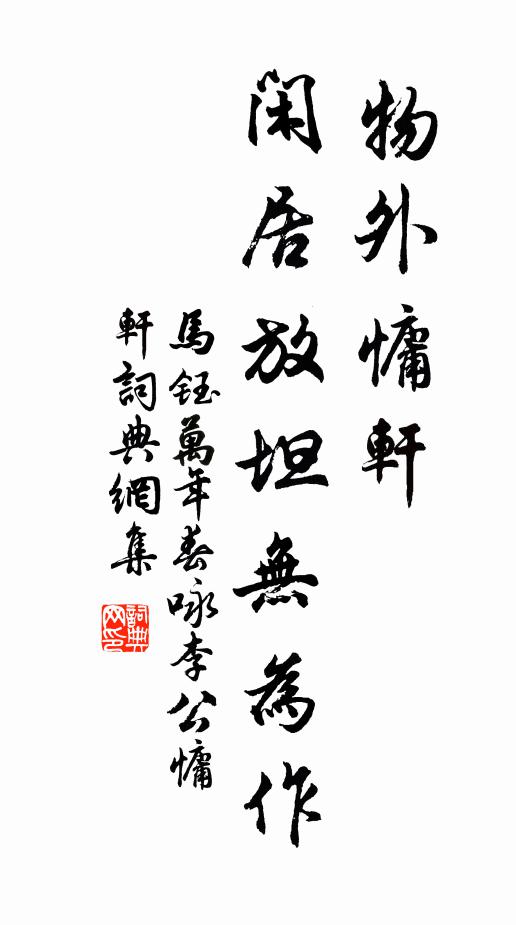 物外慵軒
閑居放坦無為作
馬鈺萬年春咏李公慵
軒詞典網集
詞典网印